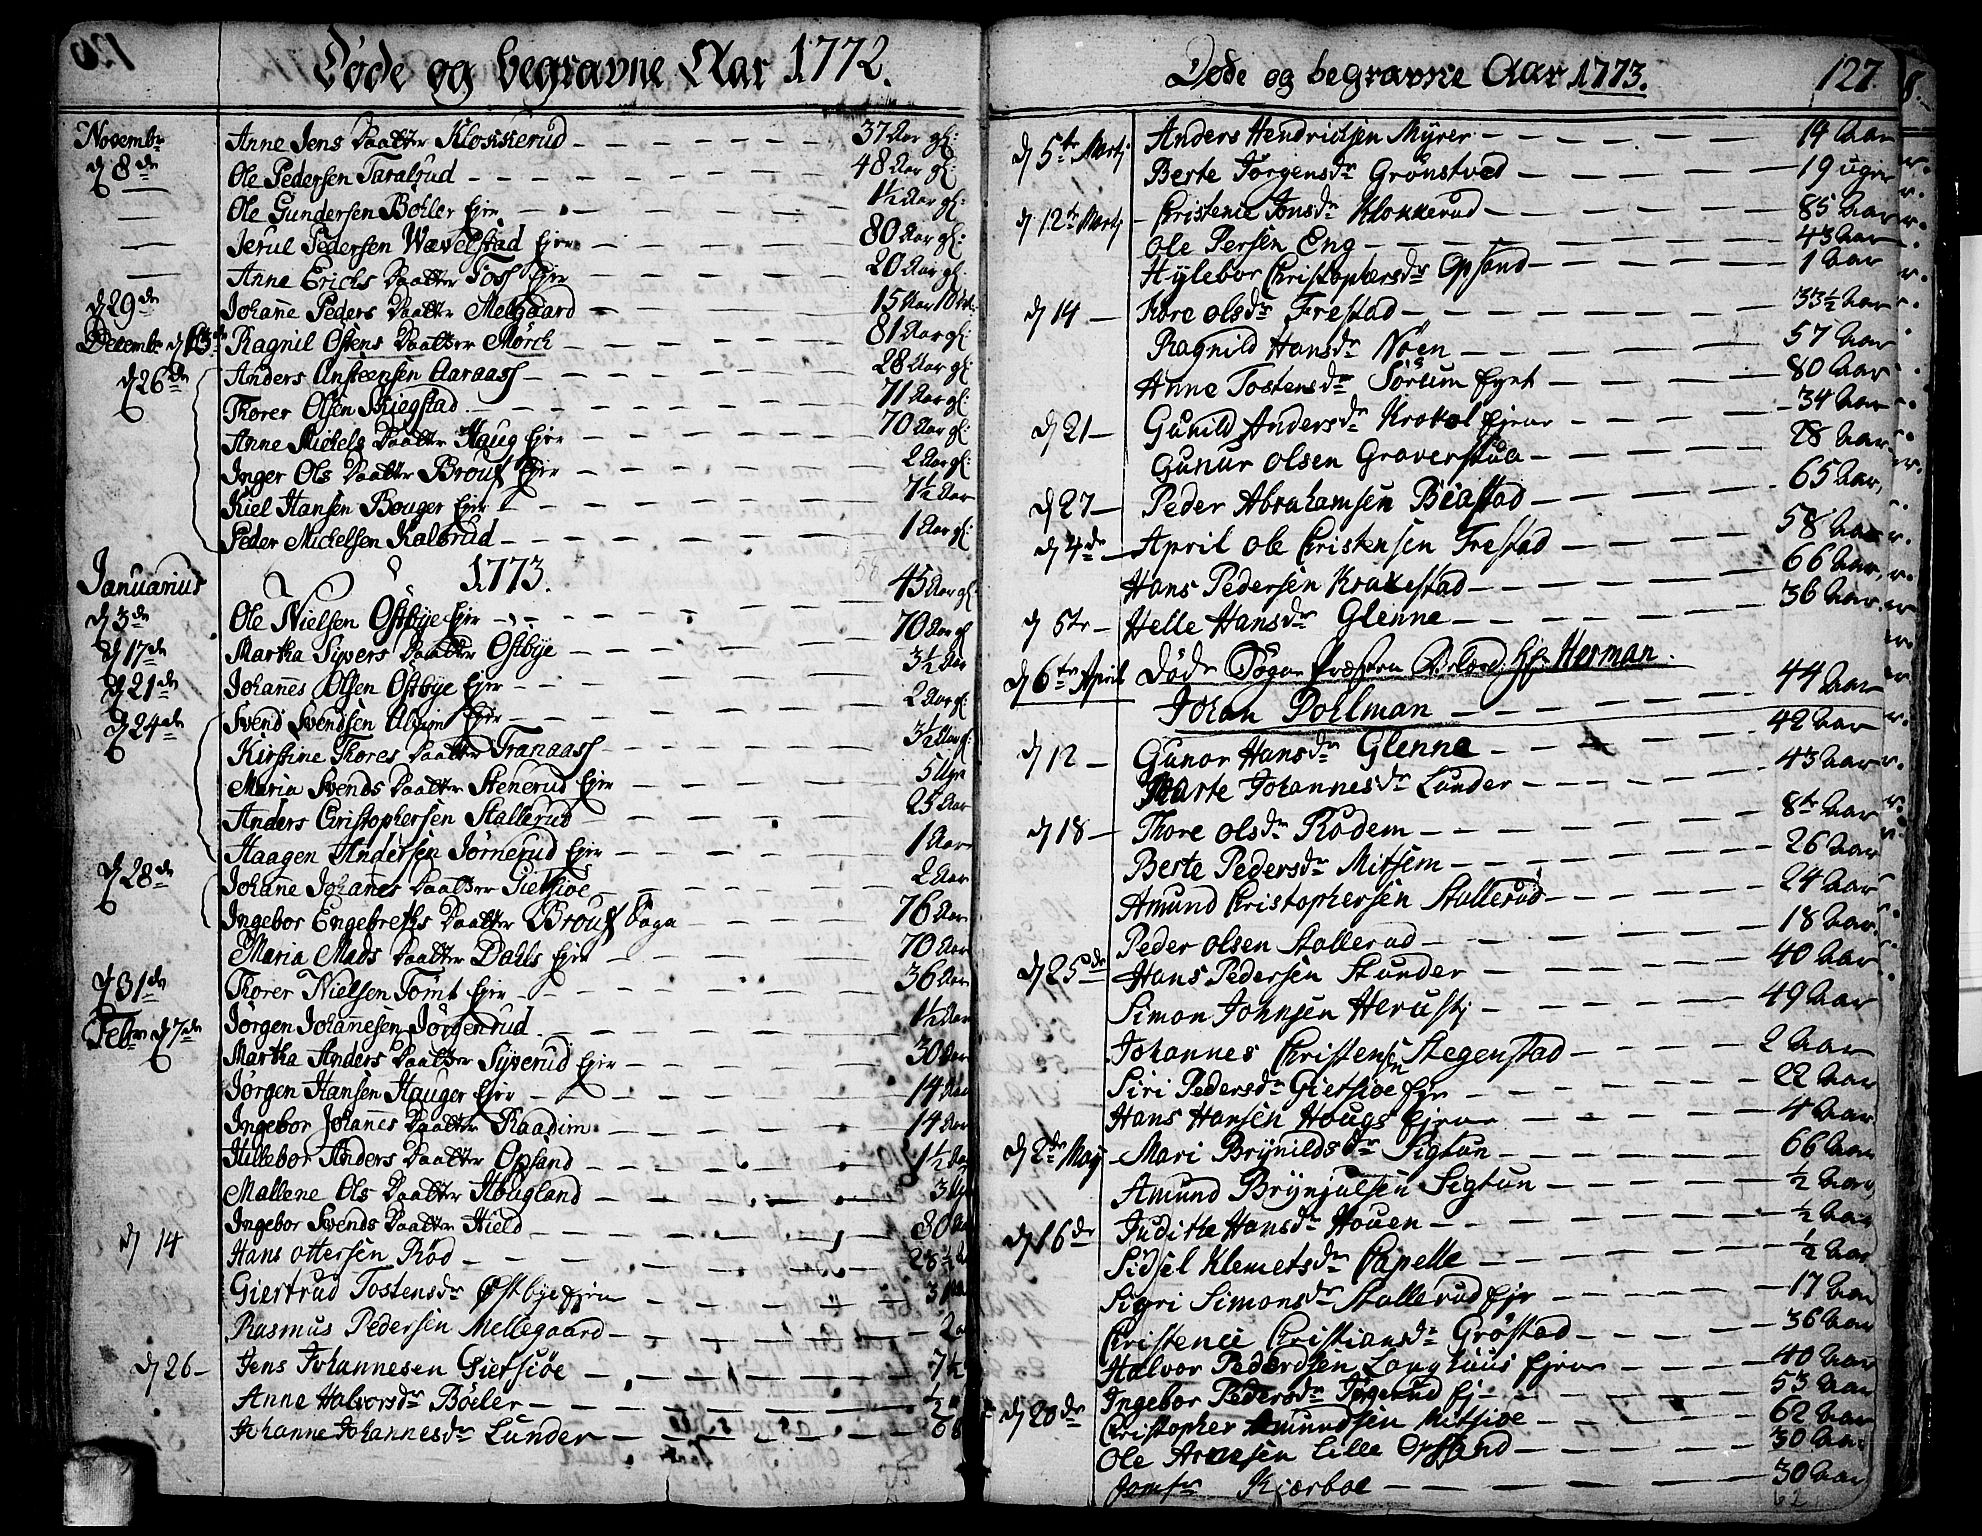 Døde og begravne Aar 1772.
Novembr Anne Jens Daatter Klokkerud 37 Aar gl:
d 8de Ole Pedersen Taralrud 48 Aar gl:
Ole Gundersen Bøhler Ejer 1½ Aar gl:
Jerul Pedersen Wævelstad Ejer 80 Aar gl:
Anne Erichs Daatter Foss Ejer 20 Aar gl
d 29de Johane Peders Daatter Melgaard 15 Aar
Decembr d 13de Ragnil Ostens Daatter Mørch 81 Aar gl:
d 26de Anders Ansteensen Aaraass 28 Aar gl:
Thorer Olsen Skiegstad 71 Aar gl:
Anne Michels Daatter Haug Ejer 70 Aar gl:
Inger Ols Daatter Brouss Ejer 2 Aar gl:
Kiel Hansen Bouger Ejer 7½ Aar
Peder Michelsen Kalsrud 1 Aar gl:
Januarius 1773.
d 3de Ole Nielsen Østbye Ejer 45 Aar gl:
d 17de Martha Sivers Daatter Østbye 70 Aar gl
d 21de Johanes Olsen Østbye Ejer 3½ Aar
d 24de Svend Svendsen Alvim Ejer 2 Aar gl:
Kirstine Thores Daatter Tranaass 3½ Aar gl:
Maria Svends Daatter Stenerud Ejer 5 Ugr
Anders Christophersen Stallerud 25 Aar
Haagen Andersen Jørnerud Ejer 1 Aar
d 28de Johane Johanes Daatter Gietsiøe 2 Aar
Ingebor Engebreths Daatter Brouss Saga 76 Aar
Maria Mads Daatter Dahls Ejer 70 Aar
d 31de Thorer Nielsen Tomt Ejer 36 Aar
Febr d 7de Jørgen Johannesen Jørgenrud 1½ Aar
Martha Anders Daatter Syverud Ejer 30 Aar
Jørgen Hansen Hauger Ejer 14 Aar
Ingebor Johanes Daatter Raadim 14 Aar
Hillebor Anders Daatter Opsand 1½ Aar
Mallene Ols Daatter Hougland 3 Ugr
Ingebor Svends Daatter Hield 80 Aar
d 14 Hans Ottersen Rød 28½
Giertrud Tostensdr Østbye Ejer 31
Rasmus Pedersen Mellegaard 2 aar
d 26 Jens Johannesen Gietsiøe 7½
Anne Halvorsdr Böeler ½
Johanne Johannesdr Lunder 68
Døde og begravne Aar 1773. 127.
d 5te Martj Anders Hendrichsen Myrer 19 Aar
Berte Jörgensdr Grönstved 19 uger
d 12te Martj Christence Jonsdr Klokkerud 85 Aar
Ole Persen Eng 43 Aar
Hylebor Christophersdr Opsand 1 Aar
d 14 Tore Olsdr Frestad 33½ Aar
Ragnild Hansdr Nöen 57 Aar
Anne Tostensdr Sörum Ejnt 80 Aar
d 21 Gunild Andersdr Krokel Ejer 34 Aar
Gunur Olsen Graverstua 28 Aar
d 27 Peder Abrahamsen Biastad 65 Aar
d 4de April Ole Christensen Frestad 58 Aar
Hans Pedersen Krakestad 66 Aar
d 5te Helle Hansdr Glenne 36 Aar
d 6te April Døde Sogne Præsten Hr. Herman
Johan Pohlman 44 Aar
d 12 Gunor Hansdr Glenne 42 Aar
Marte Johannesdr Lunder 43 Aar
d 18 Thore Olsdr Rodem 8te Aar
Berte Pedersdr Mitsem 26 Aar
Amund Christophersen Stallerud 24 Aar
Peder Olsen Stallerud 18 Aar
d 25de Hans Pedersen Skunder 40 Aar
Simon Johnsen 49 Aar
Johannes Christensen Stegenstad 2 Aar
Siri Pedersdr Gietsiöe Ejr 22 Aar
Hans Hansen Hougs Ejer 4 Aar
d 2de Maj Mari Brynildsdr Sigtun 66 Aar
Amund Brynjulsen Sigtun ½ Aar
d 16de Judithe Hansdr Houen ½ Aar
Sidsel Klemetsdr Capelle ½ Aar
Sigri Simonsdr Stallerud Ejr 17 Aar
Christence Christiansdr Gröstad 36 Aar
Halvor Pedersen Langhuus Ejer 40 Aar
Ingebor Pedersdr Jögerud Ej 53 Aar
d 20de Christopher Amundsen Mitsiøe 62 Aar
Ole Arnesen Lille Opsand 30 Aar
Jomfr Kierboe 30 Aar
62